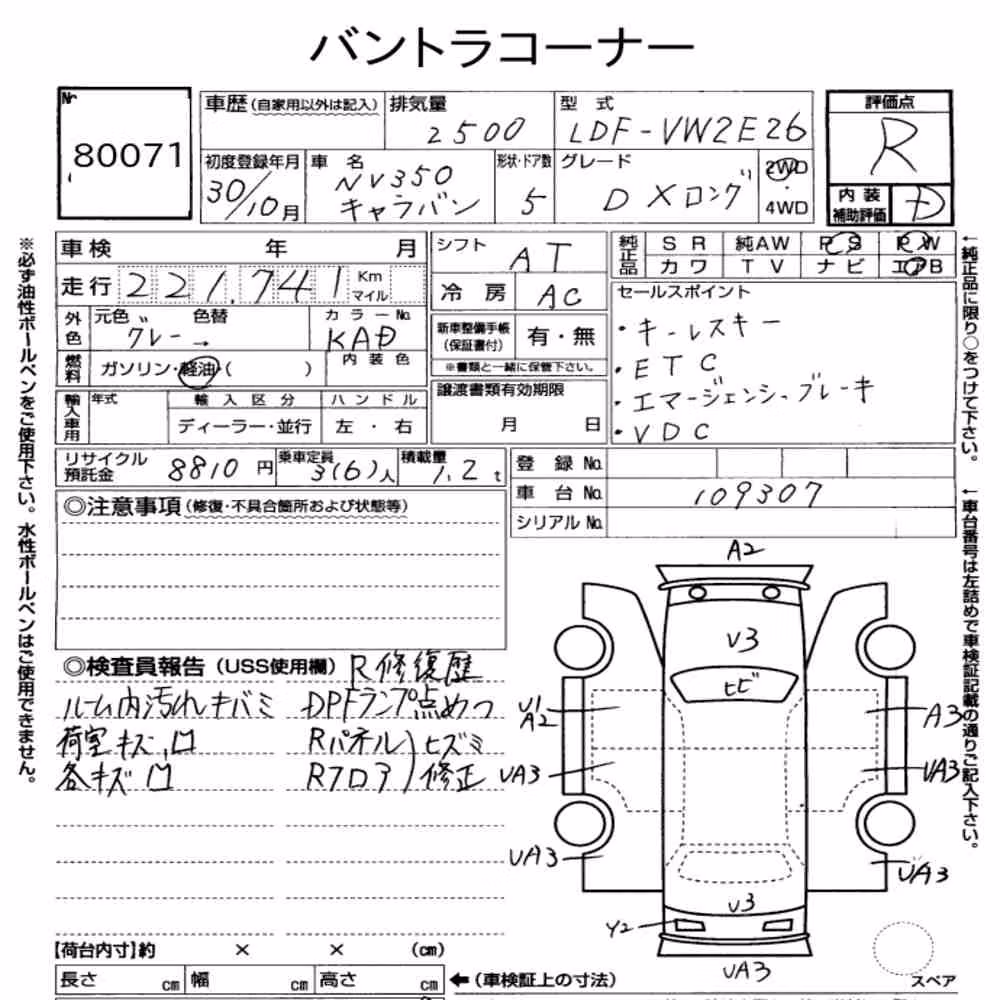 バントラコーナー
№
80071
車歴(自家用以外は記入)
排気量
2500
型式
LDF-VW2E26
評価点
R
初度登録年月
30/10月
車名
NV350
キャラバン
形状・ドア数
5
グレード
DXロング
2WD
・
4WD
内装
補助評価
D
車検 年 月
走行 221,741 Km マイル
シフト
AT
純正品
SR 純AW PS PW
カワ TV ナビ エアB
冷房
AC
セールスポイント
・キーレスキー
・ETC
・エマージェンシーブレーキ
・VDC
外色
元色 色替
グレー →
カラー№
KAD
新車整備手帳
(保証書付)
有・無
※書類と一緒に保管下さい。
燃料
ガソリン・軽油・( )
内装色
譲渡書類有効期限
月 日
輸入車用
年式
輸入区分
ハンドル
ディーラー・並行
左・右
リサイクル
預託金
8810円
乗車定員
3(6)人
積載量
1.2t
登録№
車台№
109307
シリアル№
◎注意事項(修復・不具合箇所および状態等)
◎検査員報告(USS使用欄)
R修復歴
ルーム内汚れキバミ
DPFランプ点めつ
荷室キズ、凹
Rパネル)ヒズミ
各キズ凹
Rフロア)修正
A2
V3
ヒビ
A2
A3
UA3
UA3
UA3
UA3
V3
Y2
UA3
スペア
【荷台内寸】約 × × (cm)
長さ cm 幅 cm 高さ cm
←(車検証上の寸法)
※必ず油性ボールペンをご使用下さい。水性ボールペンはご使用できません。
←純正品に限り○をつけて下さい。
←車台番号は左詰めで車検証記載の通りご記入下さい。